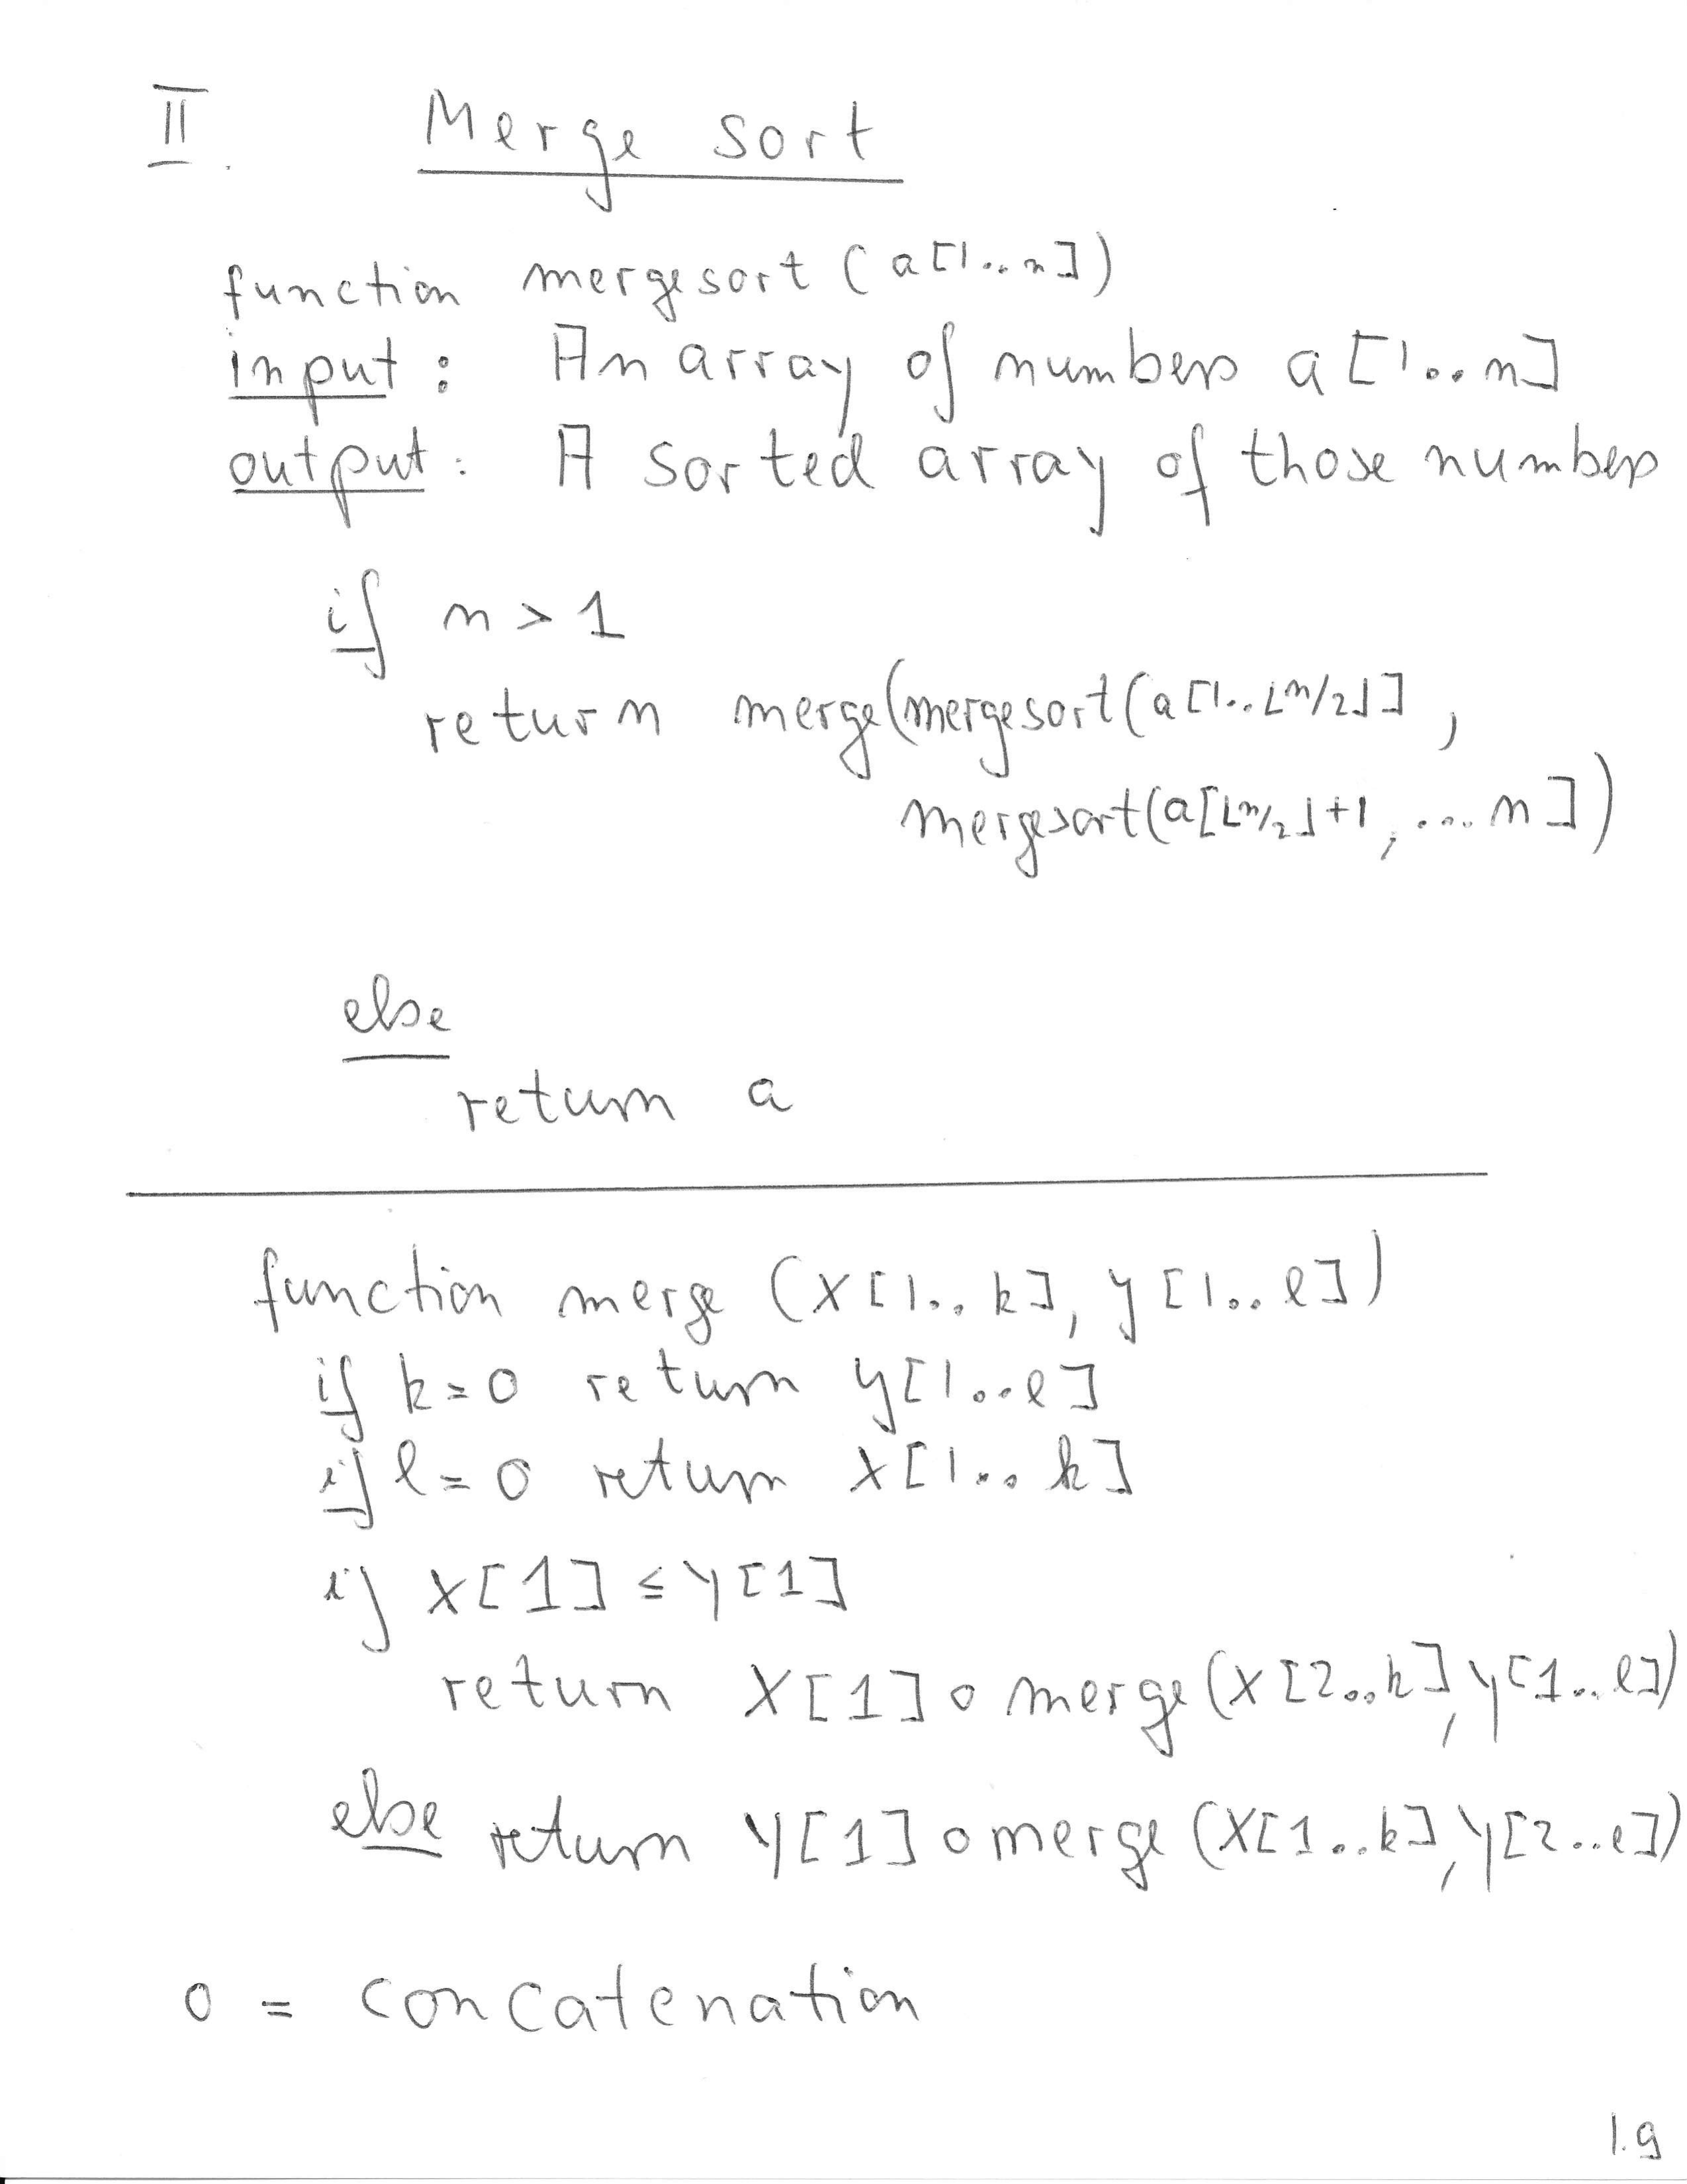 II. Merge sort
function mergesort (a[1..n])
input: An array of numbers a[1..n]
output: A sorted array of those numbers
if n > 1
return merge(mergesort(a[1..⌊n/2⌋],
mergesort(a[⌊n/2⌋+1, ....n])
else
return a
function merge (x[1..k], y[1..l])
if k=0 return y[1..l]
if l=0 return x[1..k]
if x[1] ≤ y[1]
return x[1] o merge(x[2..k], y[1..l])
else return y[1] o merge (x[1..k], y[2..l])
o = concatenation
1.9